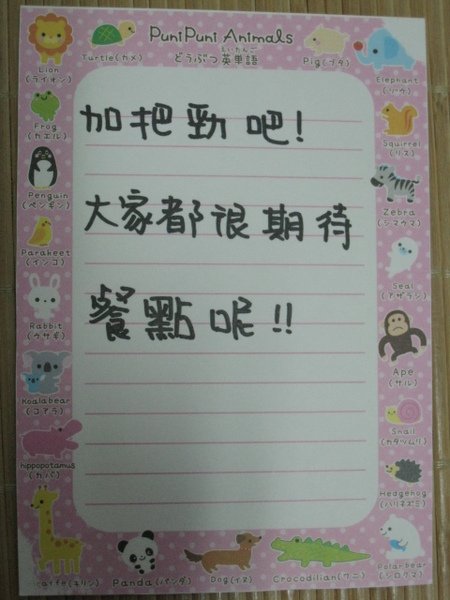 PuniPuni Animals
どうぶつ英単語
えいたんご
Lion
(ライオン)
Turtle(カメ)
Pig(ブタ)
Elephant
(ゾウ)
Frog
(カエル)
Squirrel
(リス)
Penguin
(ペンギン)
Zebra
(シマウマ)
Parakeet
(インコ)
Seal
(アザラシ)
Rabbit
(ウサギ)
Ape
(サル)
Koalabear
(コアラ)
Snail
(カタツムリ)
hippopotamus
(カバ)
Hedgehog
(ハリネズミ)
Giraffe(キリン)
Panda(パンダ)
Dog(イヌ)
Crocodilian(ワニ)
Polarbear
(シロクマ)
加把勁吧!
大家都很期待
餐點呢!!